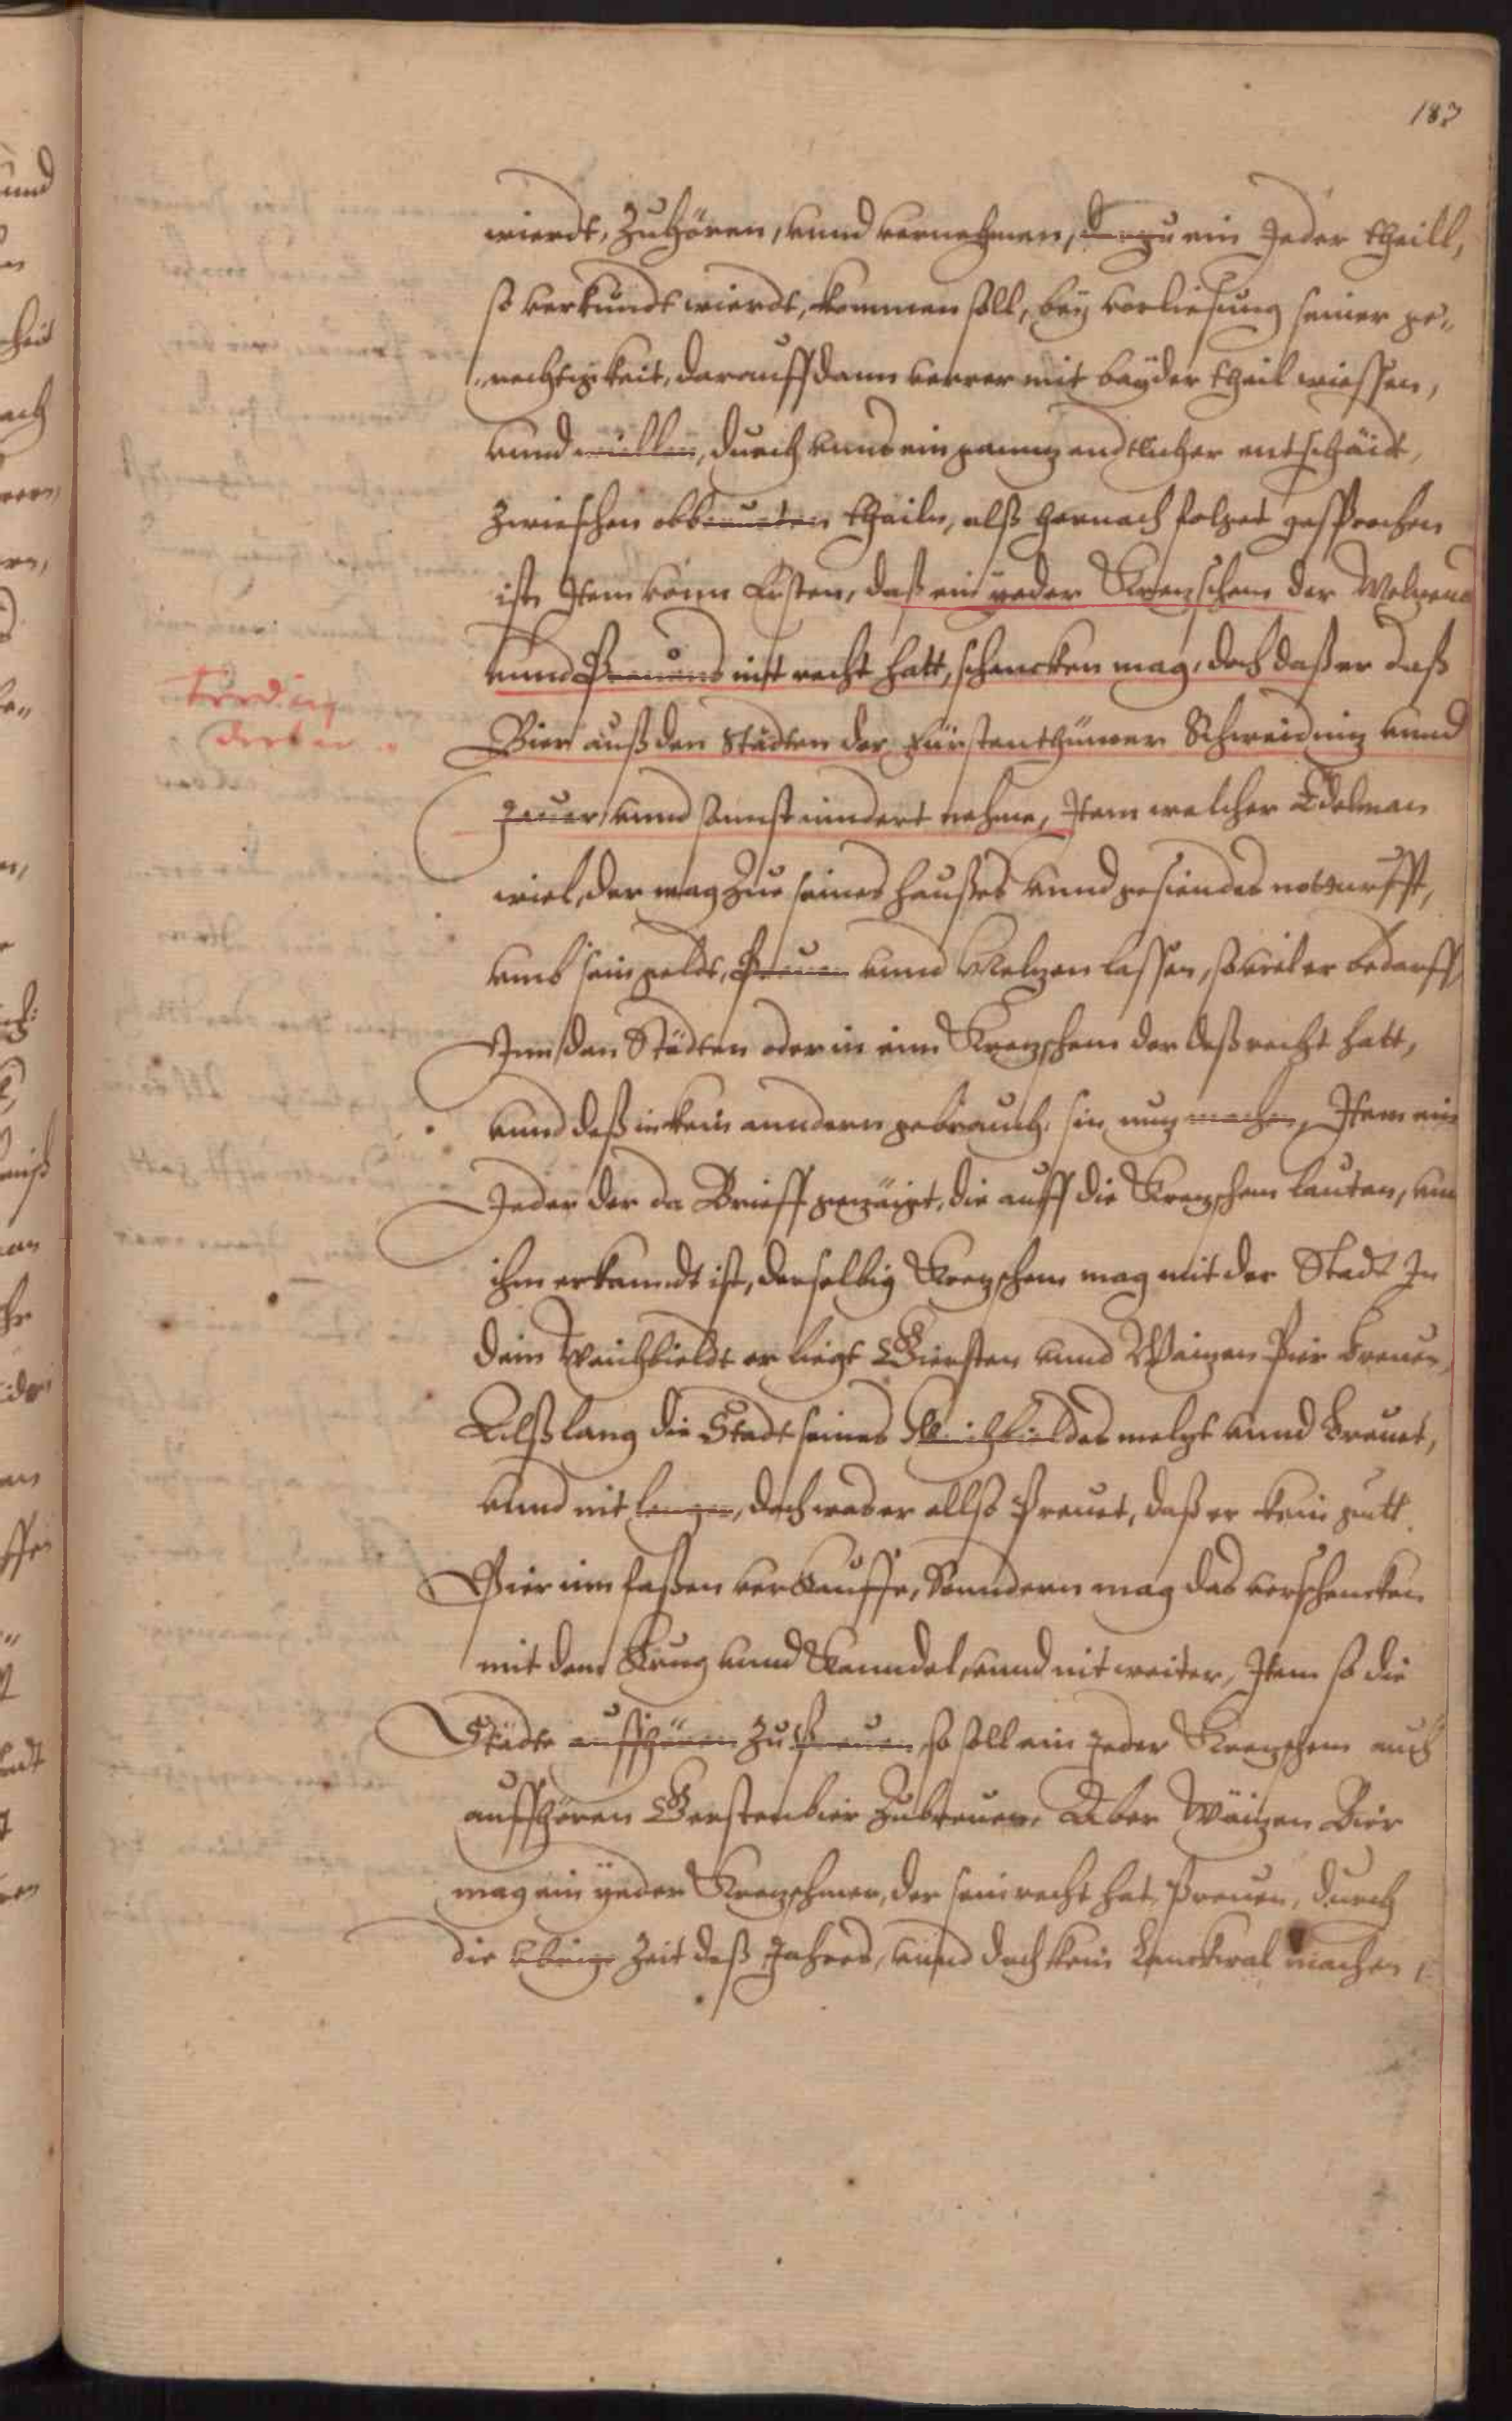 187
wierdt, Zuhören, vnnd vernehmen, Dorzu ein Jeder theill,
so verkundt wierdt, kommen soll, bey verliesung seiner ge„
„rechtigkeit, darauff dann verrer mit bayder theil wiessen,
vnnd willen, durch vnns ein gantz endtlicher entschäidt,
Zwieschen obberurten theiln, alß hernach folget gesprochen
ist, Item vonn Ersten, daß ein yeder Kretzschem der Meltzens
vnnd Preuens nit recht hatt, schencken mag, doch daß er daß
Bier auß den Städten der Fürstenthümer Schweidnitz vnnd
Jauer, vnnd sonnst nindert nehme, Item welcher Edelman
wiel, der mag Zue seines Haußes vnnd gesiendes notturfft,
vmb sein geldt, Preuen vnnd Meltzen lassen, so viel er bedarff,
Inn den Städten oder in eim Kretzschem der deß recht hatt,
vnnd deß in kein anndern gebrauch, sin nutz machen, Item ein
Jeder der da Brieff gezäigt, die auff die Kretzschem lauten, vnd
ihm erkanndt ist, derselbig Kretzschem mag mit der Stadt In
deim Weichbieldt er liegt Giersten vnnd Waitzen Pier Breuen,
Alß lang die Stadt seines Weichbieldes meltzt vnnd Breuet,
vnnd nit lenger, doch was er allso Preuet, daß er kein gutt
Pier inn faßen verkauffe, Sonndern mag das verschencken
mit dem Krug vnnd Kanndel, vnnd nit weiter, Item so die
Städte auffhören zu Preuen, so soll ein Jeder Kretzschem auch
auffhören Gerstenbier Zubreuen, Aber Wäitzen Bier
mag ein yeder Kretzschmer, der sein recht hat, Preuen, durch
die Übrige Zeit deß Jahres, vnnd doch kein machen,